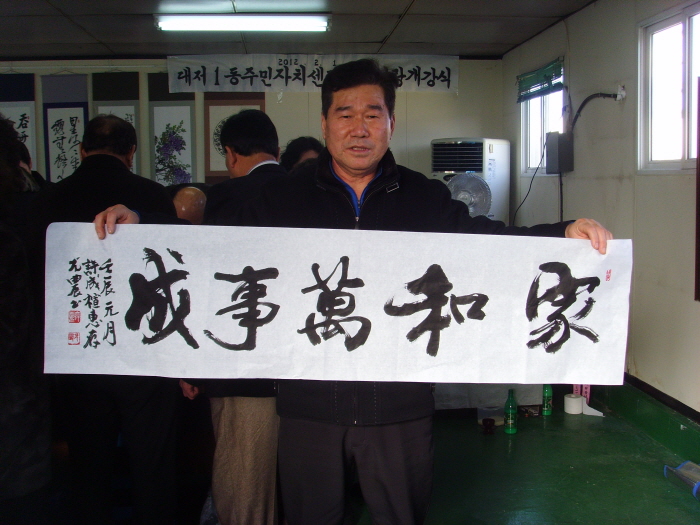 2012. 2. 1
대저 1 동주민자치센 개강식
家和萬事成
壬辰元月
許成權惠存